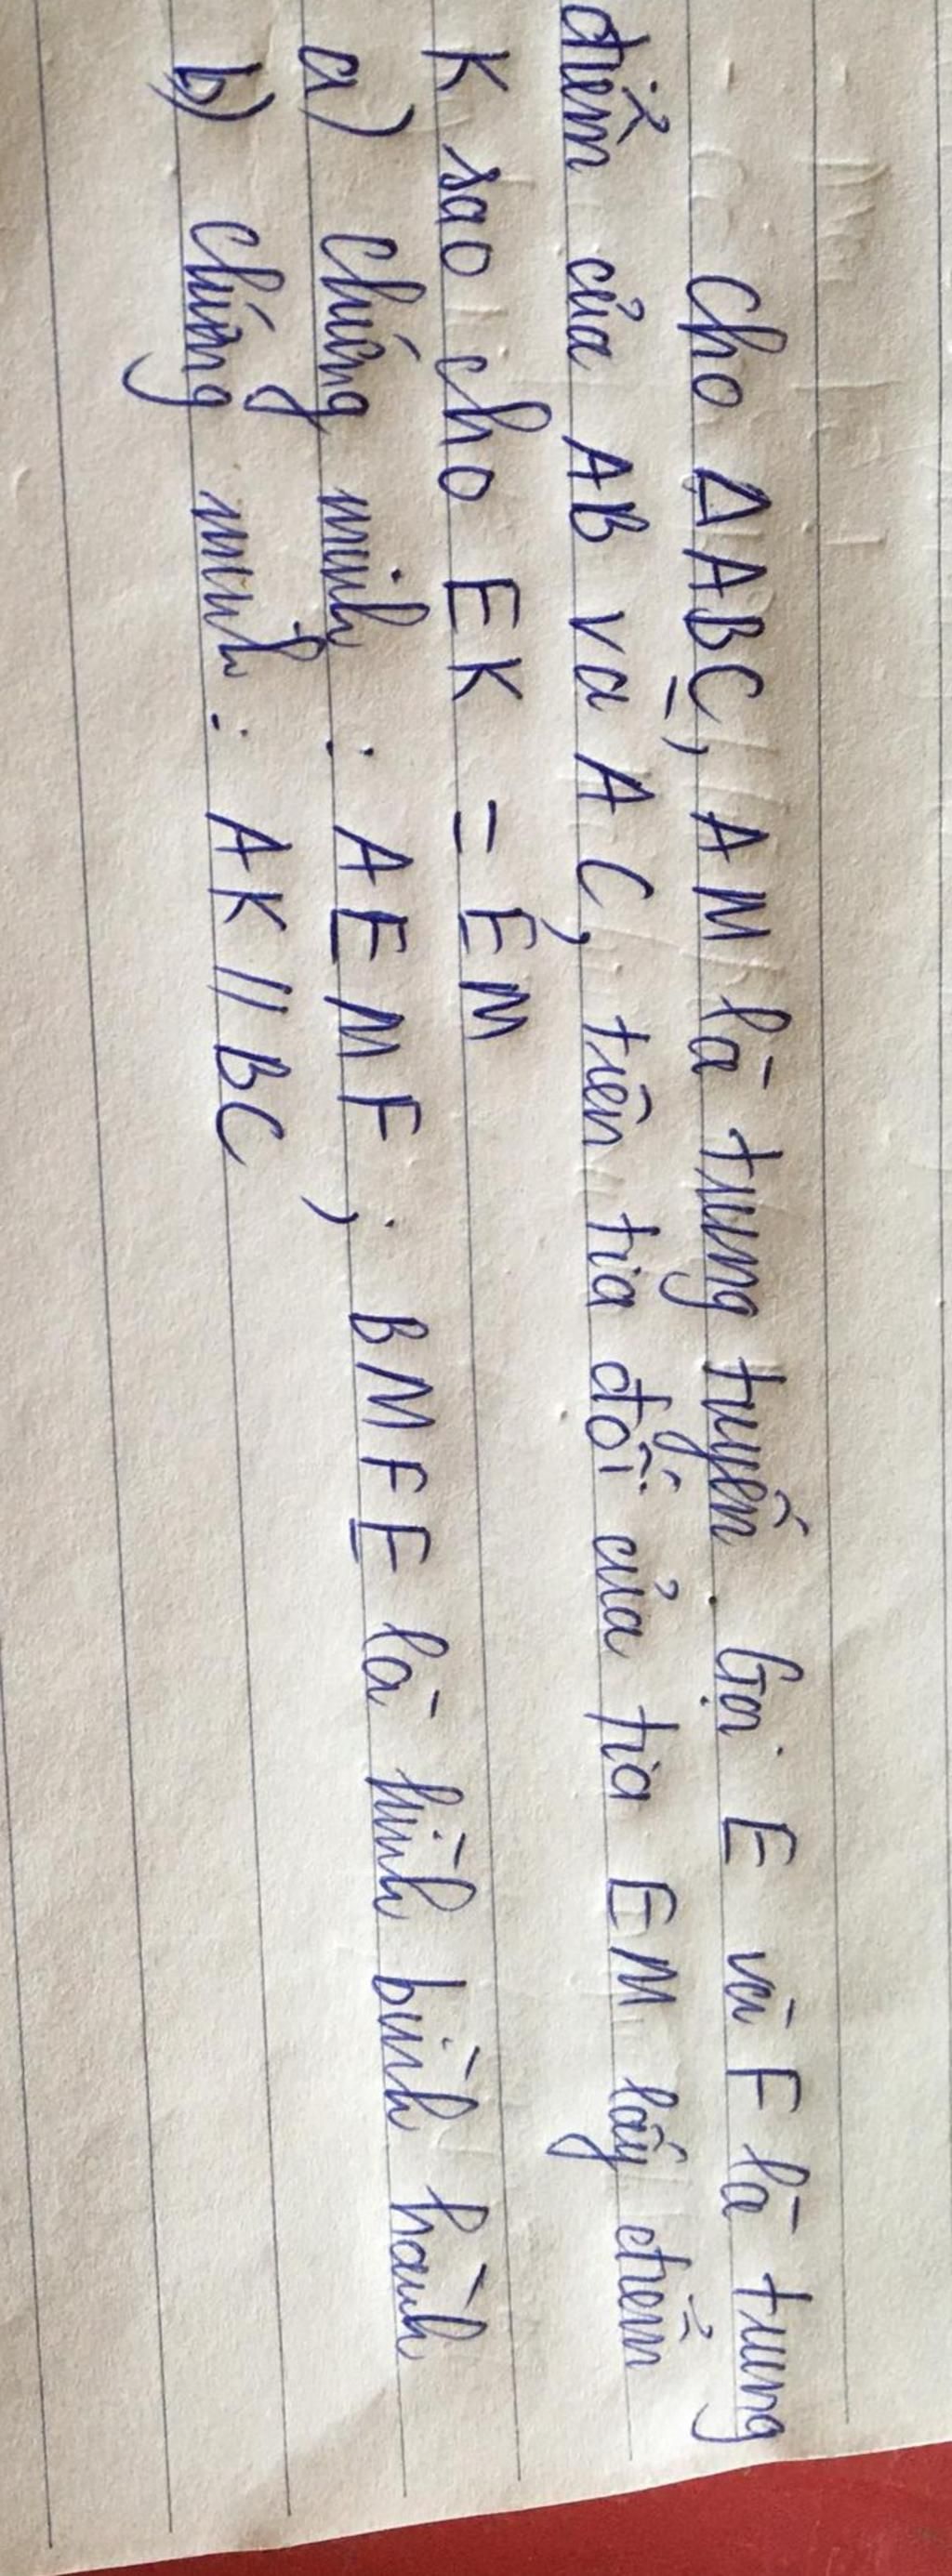 Cho ΔABC, AM là trung tuyến. Gọi E và F là trung
điểm của AB và AC, trên tia đối của tia EM lấy điểm
K sao cho EK = EM
a) chứng minh: AEMF; BMFE là hình bình hành
b) chứng minh: AK // BC